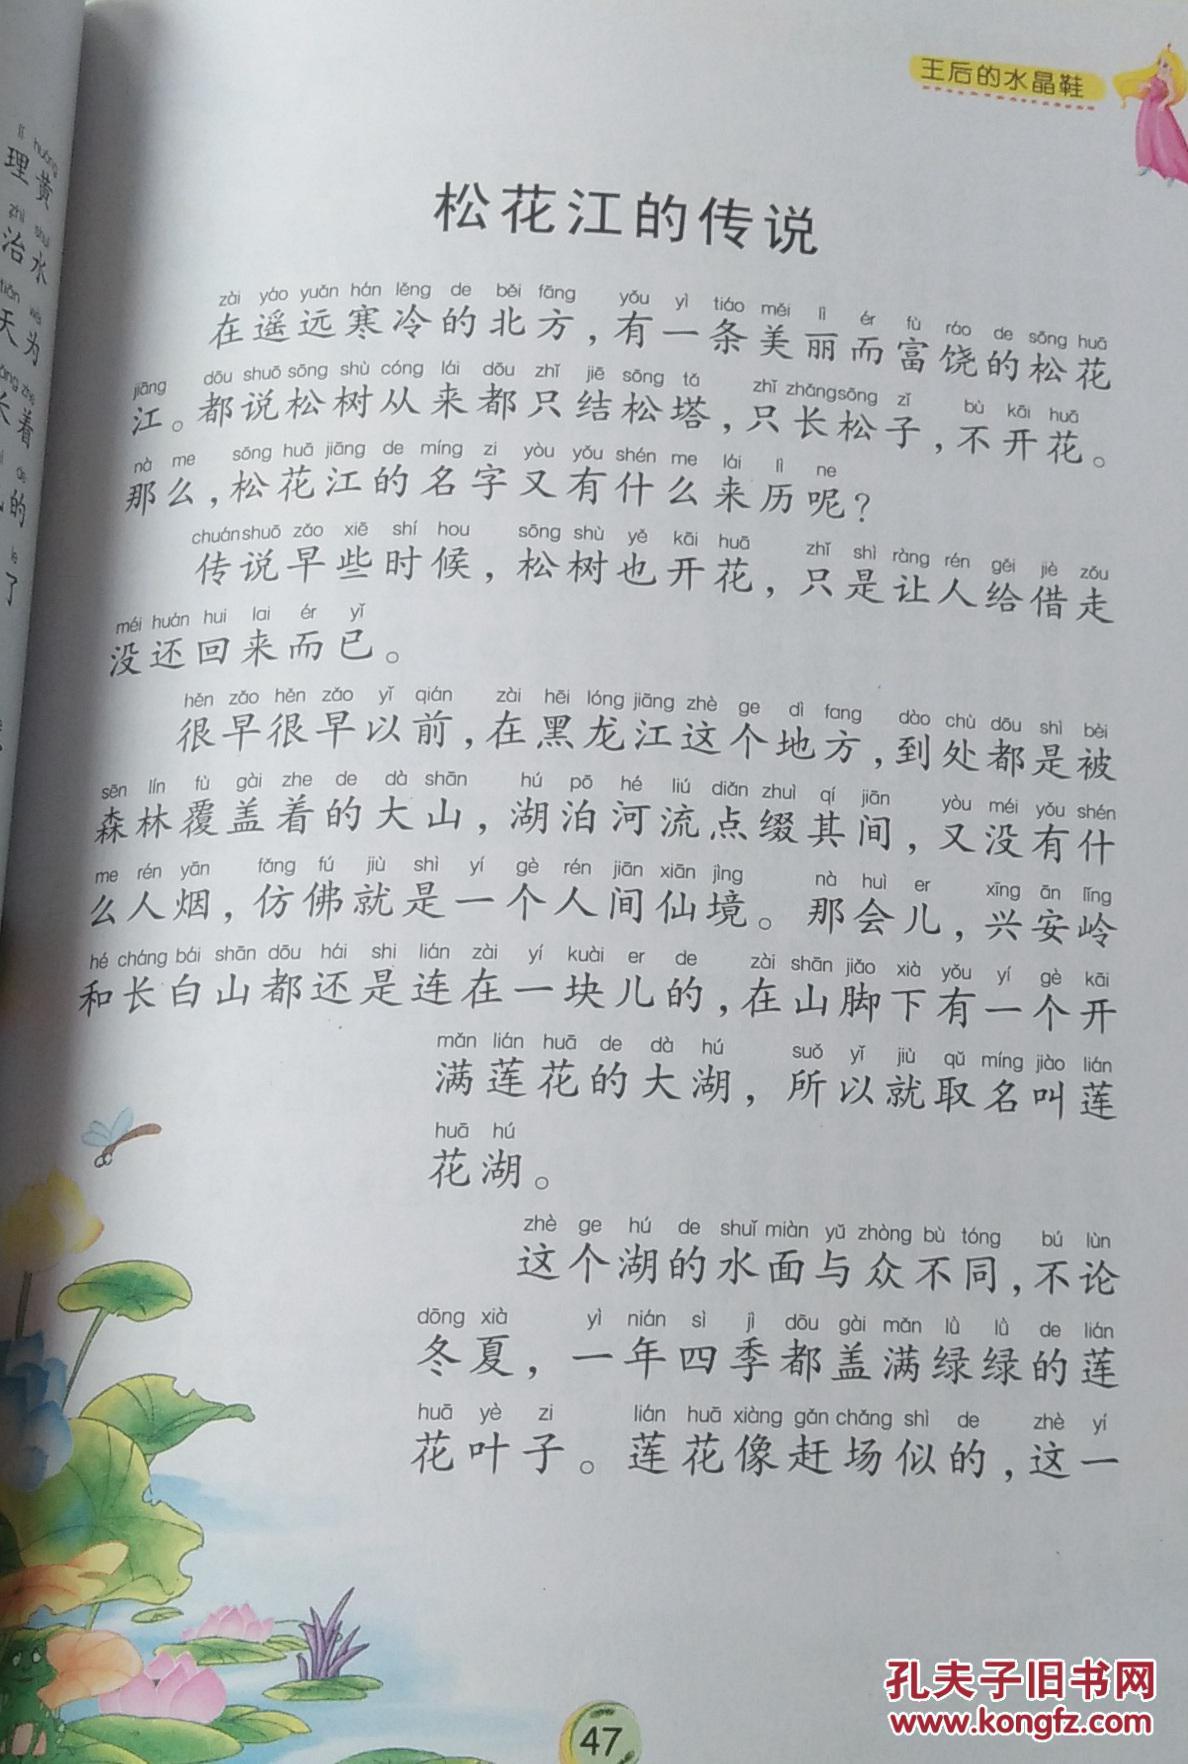 王后的水晶鞋
松花江的传说
zài yáo yuǎn hán lěng de běi fāng yǒu yì tiáo měi lì ér fù ráo de sōng huā
在遥远寒冷的北方，有一条美丽而富饶的松花
jiāng dōu shuō sōng shù cóng lái dōu zhǐ jiē sōng tǎ zhǐ zhǎng sōng zǐ bù kāi huā
江。都说松树从来都只结松塔，只长松子，不开花。
nà me sōng huā jiāng de míng zi yòu yǒu shén me lái lì ne
那么，松花江的名字又有什么来历呢？
chuán shuō zǎo xiē shí hou sōng shù yě kāi huā zhǐ shì ràng rén gěi jiè zǒu
传说早些时候，松树也开花，只是让人给借走
méi huán hui lai ér yǐ
没还回来而已。
hěn zǎo hěn zǎo yǐ qián zài hēi lóng jiāng zhè ge dì fang dào chù dōu shì bèi
很早很早以前，在黑龙江这个地方，到处都是被
sēn lín fù gài zhe de dà shān hú pō hé liú diǎn zhuì qí jiān yòu méi yǒu shén
森林覆盖着的大山，湖泊河流点缀其间，又没有什
me rén yān fǎng fú jiù shì yí gè rén jiān xiān jìng nà huì er xīng ān lǐng
么人烟，仿佛就是一个人间仙境。那会儿，兴安岭
hé cháng bái shān dōu hái shi lián zài yí kuài er de zài shān jiǎo xià yǒu yí gè kāi
和长白山都还是连在一块儿的，在山脚下有一个开
mǎn lián huā de dà hú suǒ yǐ jiù qǔ míng jiào lián
满莲花的大湖，所以就取名叫莲
huā hú
花湖。
zhè ge hú de shuǐ miàn yǔ zhòng bù tóng bú lùn
这个湖的水面与众不同，不论
dōng xià yì nián sì jì dōu gài mǎn lǜ lǜ de lián
冬夏，一年四季都盖满绿绿的莲
huā yè zi lián huā xiàng gǎn chǎng shì de zhè yí
花叶子。莲花像赶场似的，这一
47
lǐ huáng
理黄
zhì shuǐ
治水
tiān wéi
天为
zhe
长着
de
的
le
了
孔夫子旧书网
www.kongfz.com